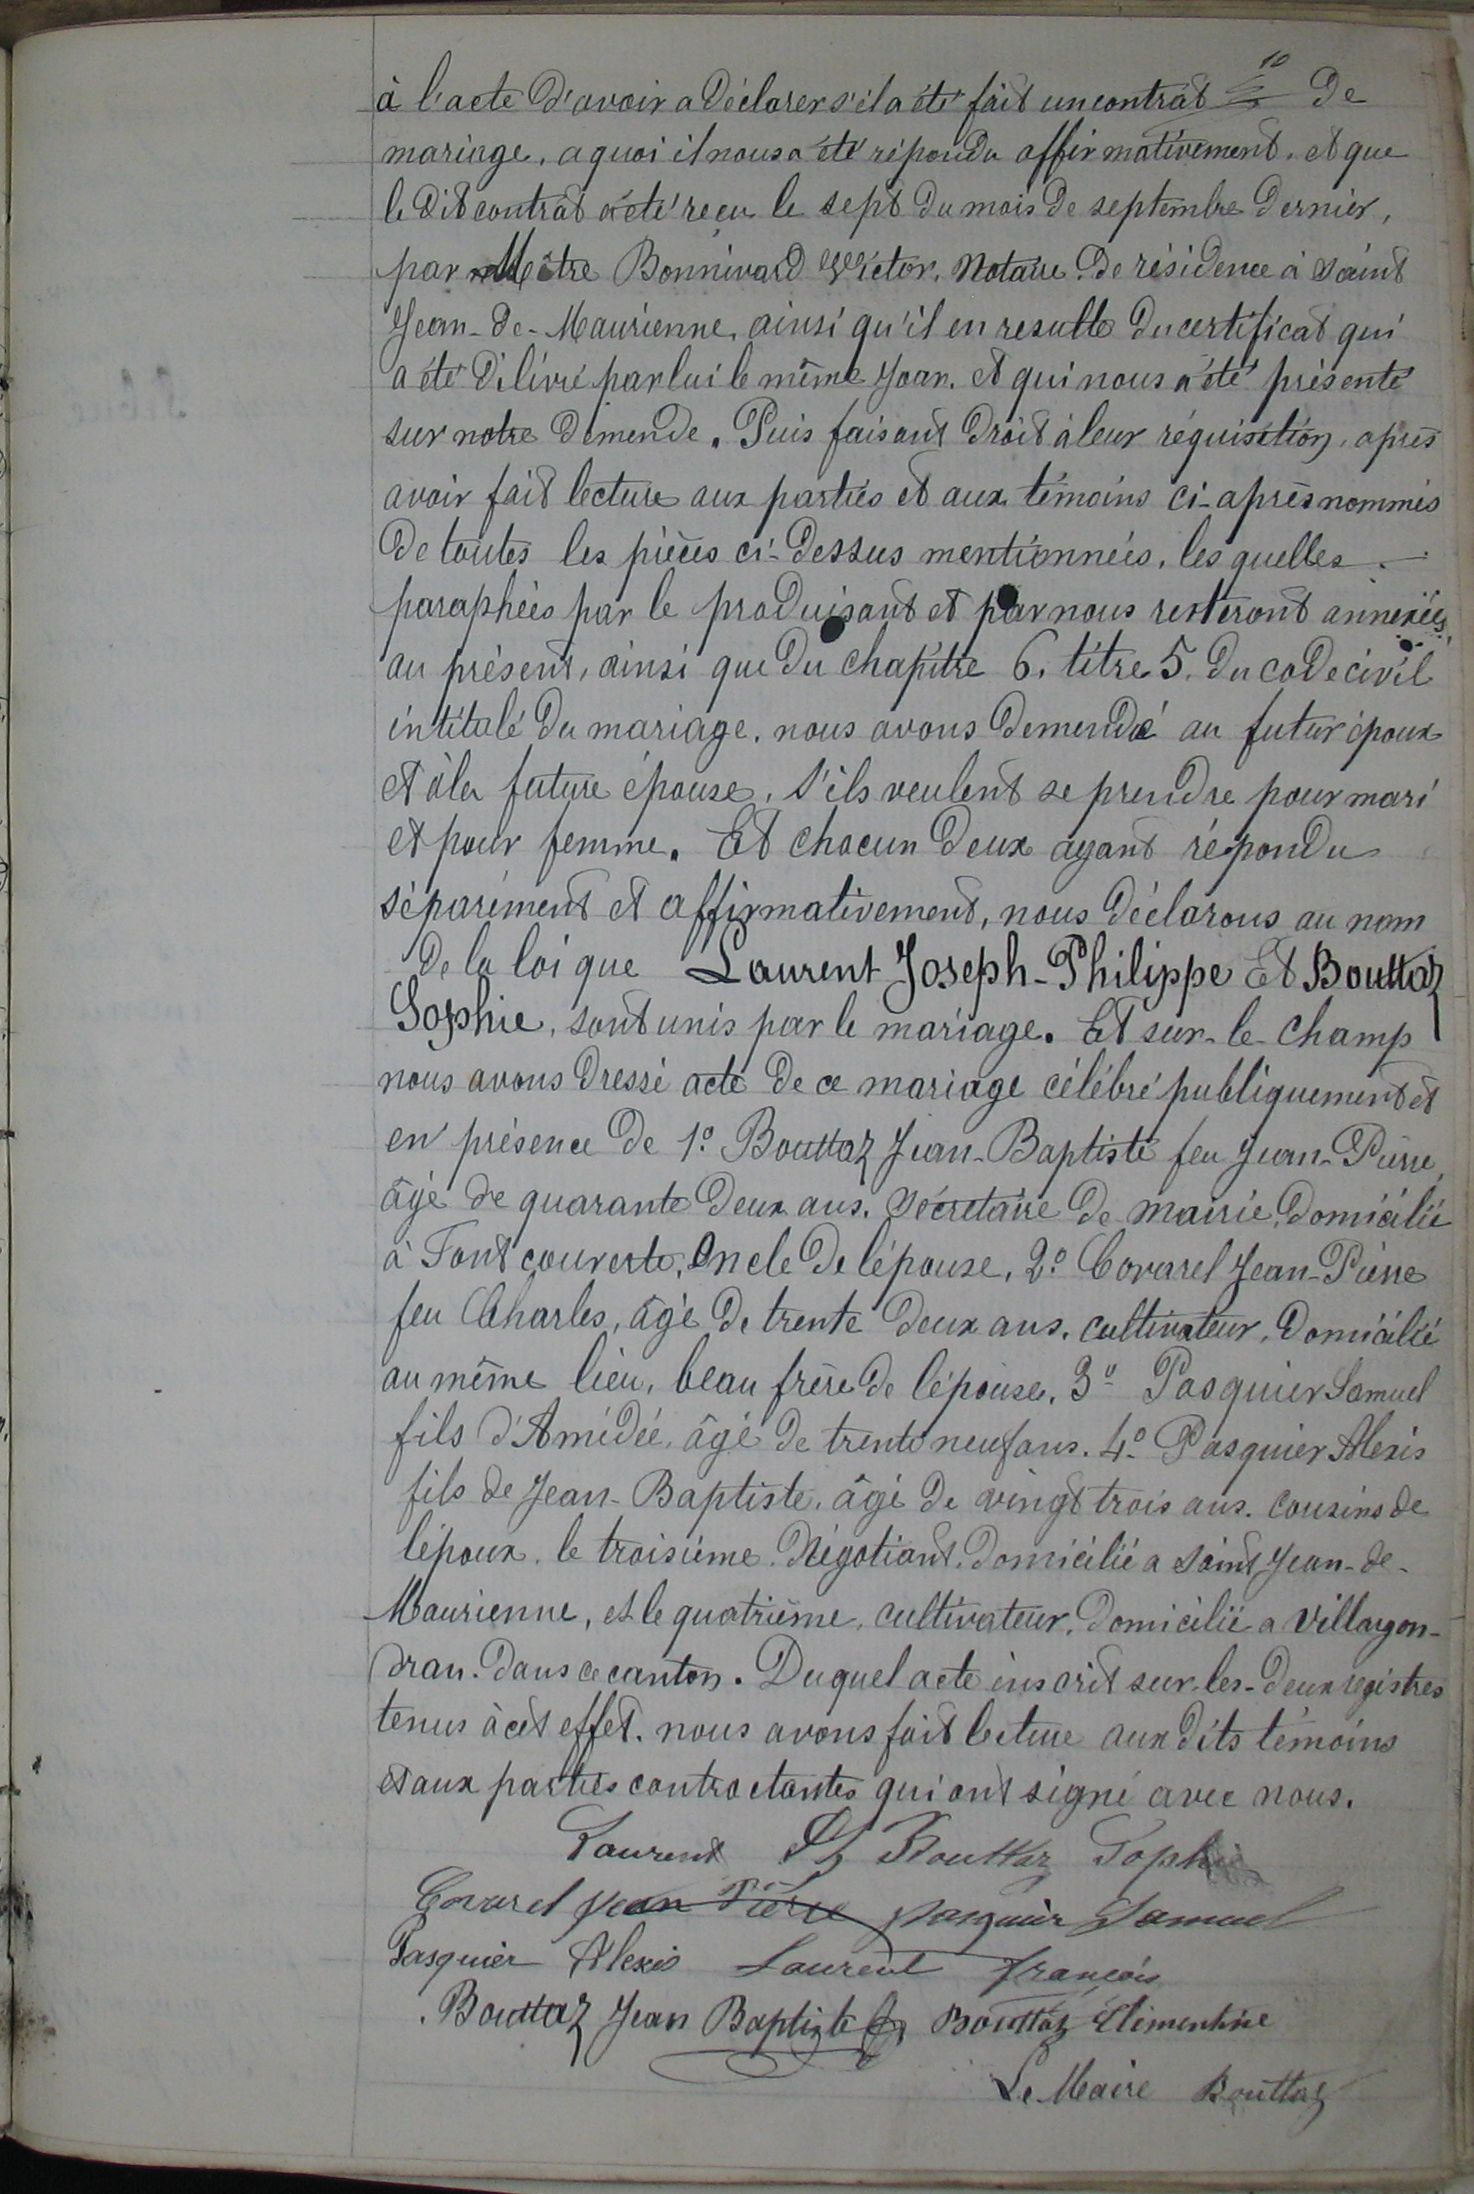 10
à l'acte d'avoir a déclarer s'il a été fait un contrat de
mariage, a quoi il nous a été répondu affirmativement, et que
le dit contrat a été reçu le sept du mois de septembre dernier,
par Meitre Bonnivard Victor, Notaire de résidence à Saint
Jean-de-Maurienne, ainsi qu'il en resulte du certificat qui
a été délivré par lui le même jour, et qui nous a été présenté
sur notre demende. Puis faisant droit à leur réquisition, après
avoir fait lecture aux parties et aux témoins ci-après nommés
de toutes les pièces ci-dessus mentionnées, les quelles
paraphées par le produisant et par nous resteront annexées
au présent, ainsi que du chapitre 6. titre 5. du code civil
intitulé du mariage, nous avons demendé au futur époux
et à la future épouse, s'ils veulent se prendre pour mari
et pour femme. Et chacun deux ayant répondu
séparément et affirmativement, nous déclarons au nom
de la loi que Laurent Joseph-Philippe Et Bouttaz
Sophie, sont unis par le mariage. Et sur-le-champ
nous avons dressé acte de ce mariage célébré publiquement et
en présence de 1º Bouttaz Jean-Baptiste feu Jean-Pierre,
âgé de quarante deux ans, Sécretaire de mairie, domicilié
à Fontcouverte, Oncle de lépouse, 2º Covarel Jean-Pierre
feu Charles, âgé de trente deux ans, cultivateur, domicilié
au même lieu, beau frère de lépouse, 3º Pasquier Samuel
fils d'Amédée, âgé de trente neuf ans. 4º Pasquier Alexis
fils de Jean-Baptiste, âgé de vingt trois ans. cousins de
lépoux, le troisième Négotiant, domicilié a Saint Jean-de-
Maurienne, et le quatrième, cultivateur, domicilié a Villargon-
dran. dans ce canton. Duquel acte inscrit sur-les-deux registres
tenus à cet effet, nous avons fait lecture aux dits témoins
et aux parties contractantes qui ont signé avec nous.
Laurent Bouttaz Sophie
Covarel Jean Pierre Pasquier Samuel
Pasquier Alexis Laurent François
Bouttaz Jean Baptiste Bouttaz Clémentine
Le Maire Bouttaz